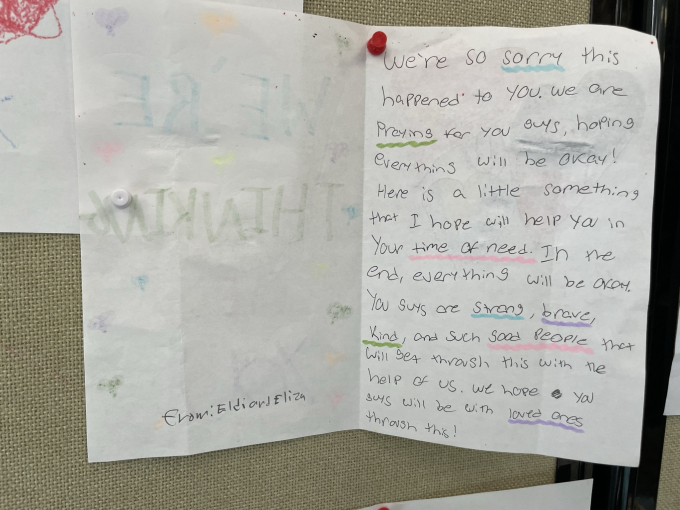 WE'RE
THINKING
From: Eldi and Eliza
We're so sorry this
happened to you. We are
Praying for you guys, hoping
everything will be okay!
Here is a little something
that I hope will help you in
your time of need. In the
end, everything will be okay.
You guys are strong, brave,
kind, and such good people that
will get through this with the
help of us. We hope you
guys will be with loved ones
through this!